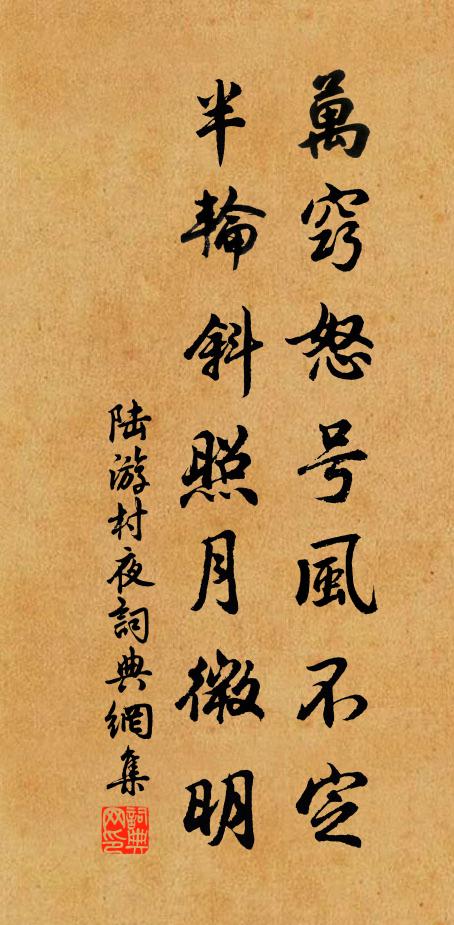 萬窍怒号風不定
半輪斜照月微明
陆游村夜詞典網集
詞典網印